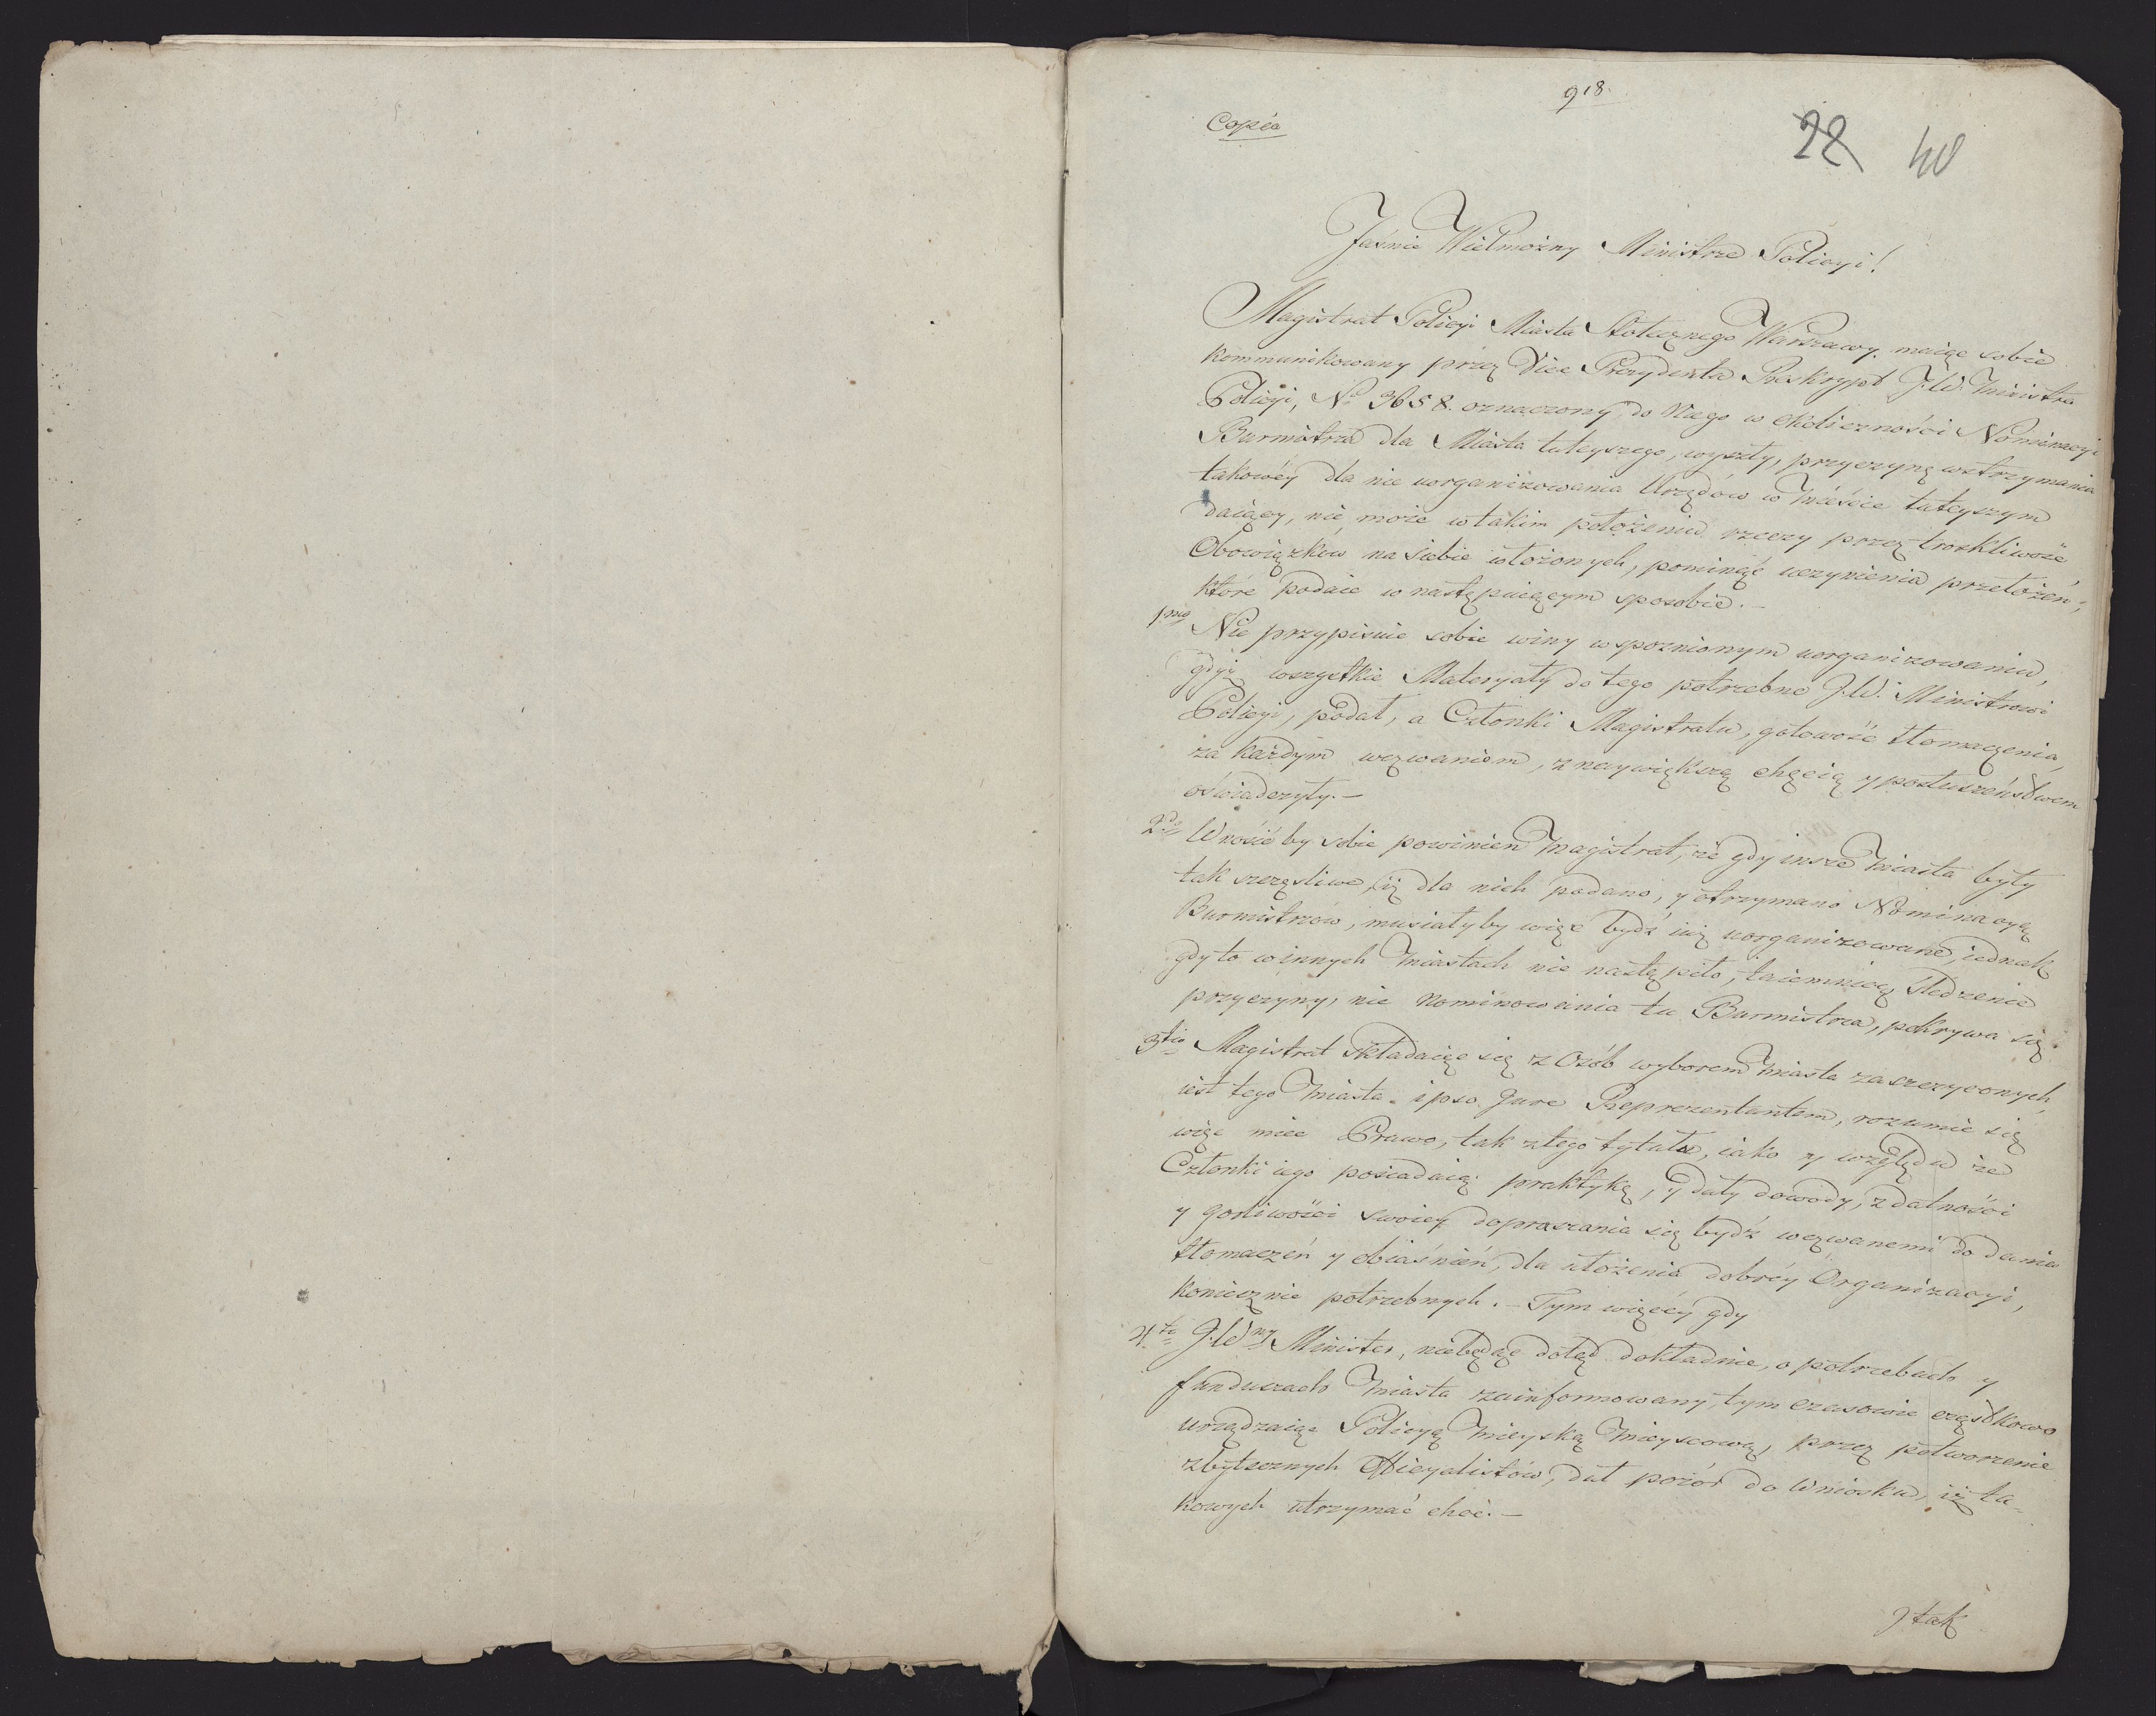 918.
Copia
28 40
Jaśnie Wielmożny Ministrze Policyi!
Magistrat Policyi Miasta Stołecznego Warszawy maiąc sobie
kommunikowany przez Vice Prezydenta Reskrypt J.W. Ministra
Policyi, No 3658. oznaczony, do Niego w okoliczności Nominacyi
Burmistrza dla Miasta tuteyszego, wyszły, przyczynę wstrzymania
takowéy dla nie uorganizowania Urzędów w Mieście tuteyszym
daiący, nie może w takim położeniu rzeczy przez troskliwość
Obowiązków na siebie włożonych, pominąć uczynienia przełożeń,
które podaie w następuiącym sposobie. —
1mo Nie przypisuie sobie winy w spoznionym uorganizowaniu,
gdyż wszystkie Materyały do tego potrzebne J.W. Ministrowi
Policyi, podał, a Członki Magistratu, gotowość tłomaczenia,
za każdym wezwaniem, z naywiększą chęcią y posłuszeństwem
oświadczyły. —
2do Wnosić by sobie powinien Magistrat, że gdy insze Miasta były
tak szczęśliwe, iż dla nich podano, y otrzymano Nominacyą
Burmistrzów, musiałyby więc bydź iuż uorganizowane, iednak
gdy to w innych Miastach nie nastąpiło, taiemnicą śledzenie
przyczyny, nie nominowania tu Burmistrza, pokrywa się.
3tio Magistrat składaiąc się z Osób wyborem Miasta zaszczyconych,
iest tego Miasta ipso Jure Reprezentantem, rozumie się
więc mieć Prawo, tak z tego tytułu, iako y względu że
Członki iego posiadaią praktykę, y dały dowody, zdatności
y gorliwości swoiey dopraszania się bydź wezwanemi do dania
tłomaczeń y obiaśnień, dla ułożenia dobréy Organizacyi,
koniecznie potrzebnych. — Tym więcéy gdy
4to J.Wny Minister, niebędąc dotąd dokładnie, o potrzebach y
funduszach Miasta zainformowany, tym czasowie cząstkowo
urządzaiąc Policyą Mieyską Mieyscową, przez potworzenie
zbytecznych Officyalistów, dał pozór do Wniosku, iż ta-
kowych utrzymać chce. —
J tak